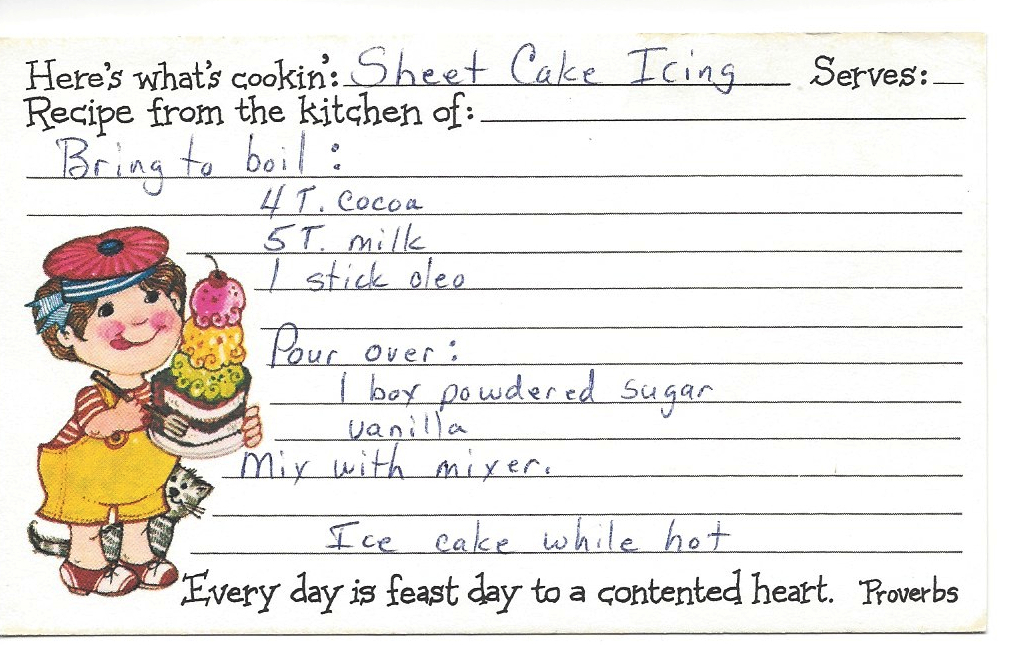 Here's what's cookin': Sheet Cake Icing Serves:
Recipe from the kitchen of:
Bring to boil :
4 T. cocoa
5 T. milk
1 stick oleo
Pour over :
1 box powdered sugar
vanilla
Mix with mixer.
Ice cake while hot
Every day is feast day to a contented heart. Proverbs